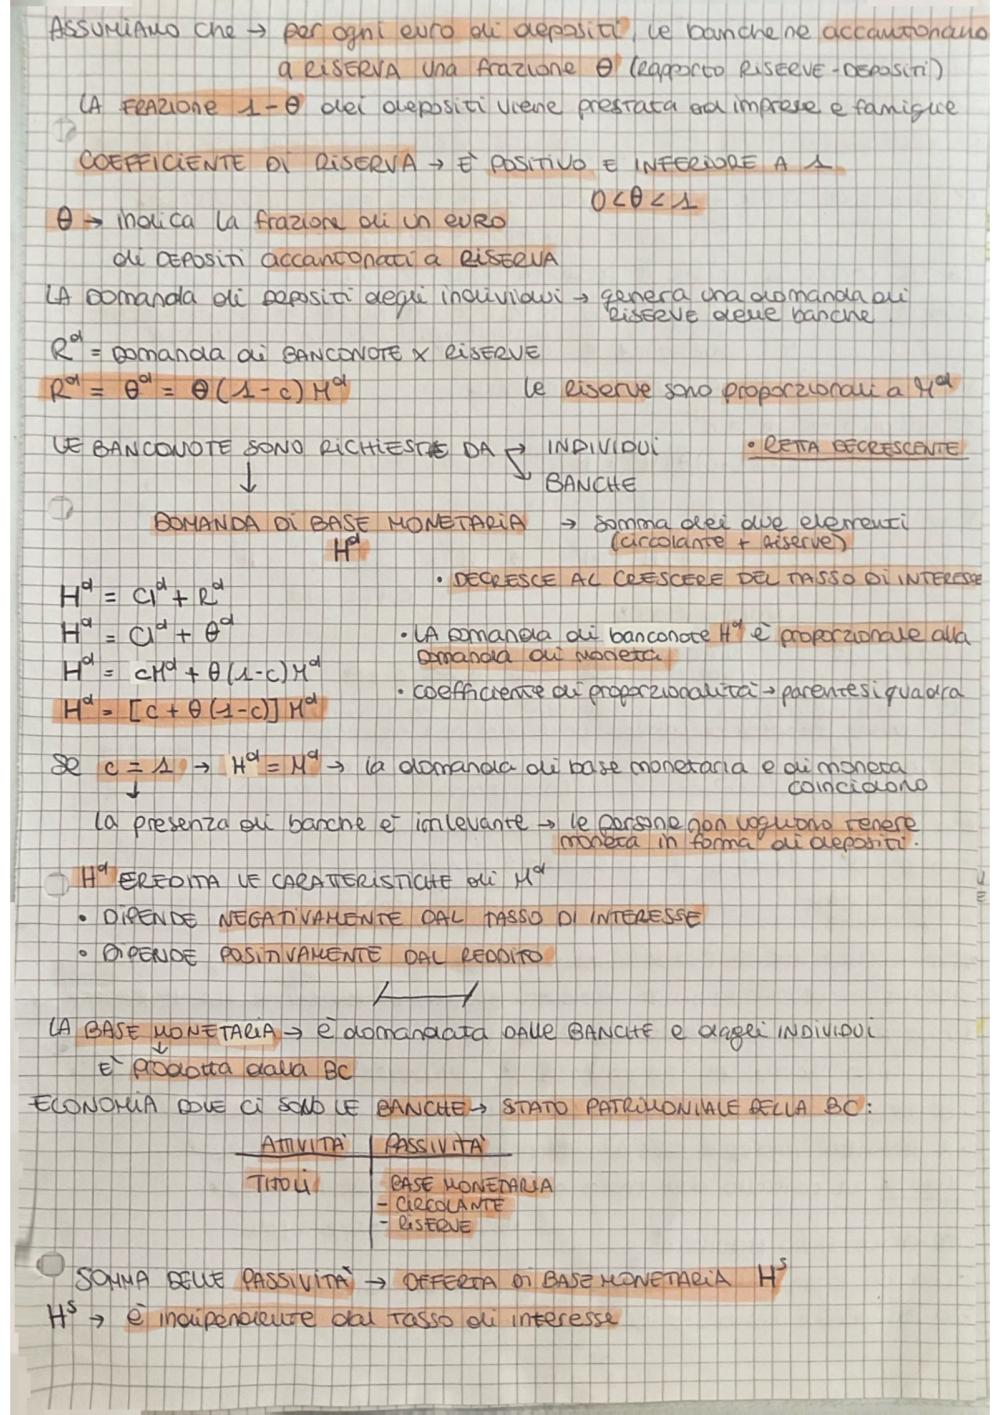 ASSUMIAMO che → per ogni euro di depositi, le banche ne accantonano
a RISERVA una frazione θ (Rapporto RISERVE-DEPOSITI)
LA FRAZIONE 1-θ dei depositi viene prestata ad imprese e famiglie
COEFFICIENTE DI RISERVA → È POSITIVO E INFERIORE A 1
0<θ<1
θ → indica la frazione di un EURO
di DEPOSITI accantonati a RISERVA
LA Domanda di Depositi degli individui → genera una domanda di
RISERVE delle banche
Rᵈ = Domanda di BANCONOTE X RISERVE
Rᵈ = θᵈ = θ(1-c)Mᵈ le Riserve sono proporzionali a Mᵈ
LE BANCONOTE SONO RICHIESTE DA → INDIVIDUI • RETTA DECRESCENTE
↓ ↘ BANCHE
DOMANDA DI BASE MONETARIA → somma dei due elementi
Hᵈ (circolante + Riserve)
• DECRESCE AL CRESCERE DEL TASSO DI INTERESSE
Hᵈ = CIᵈ + Rᵈ
Hᵈ = CIᵈ + θᵈ • LA Domanda di banconote Hᵈ è proporzionale alla
Domanda di moneta
Hᵈ = cMᵈ + θ(1-c)Mᵈ
• coefficiente di proporzionalità → parentesi quadra
Hᵈ = [c + θ(1-c)] Mᵈ
Se c = 1 → Hᵈ = Mᵈ → la domanda di base monetaria e di moneta
↓ coincidono
la presenza di banche è irrilevante → le persone non vogliono tenere
moneta in forma di depositi.
Hᵈ EREDITA LE CARATTERISTICHE di Mᵈ
• DIPENDE NEGATIVAMENTE DAL TASSO DI INTERESSE
• DIPENDE POSITIVAMENTE DAL REDDITO
LA BASE MONETARIA → è domandata DALLE BANCHE e dagli INDIVIDUI
↓
E' prodotta dalla BC
ECONOMIA DOVE CI SONO LE BANCHE → STATO PATRIMONIALE DELLA BC:
ATTIVITA' PASSIVITA'
TITOLI BASE MONETARIA
- CIRCOLANTE
- RISERVE
SOMMA DELLE PASSIVITA' → OFFERTA DI BASE MONETARIA Hˢ
Hˢ → è indipendente dal tasso di interesse